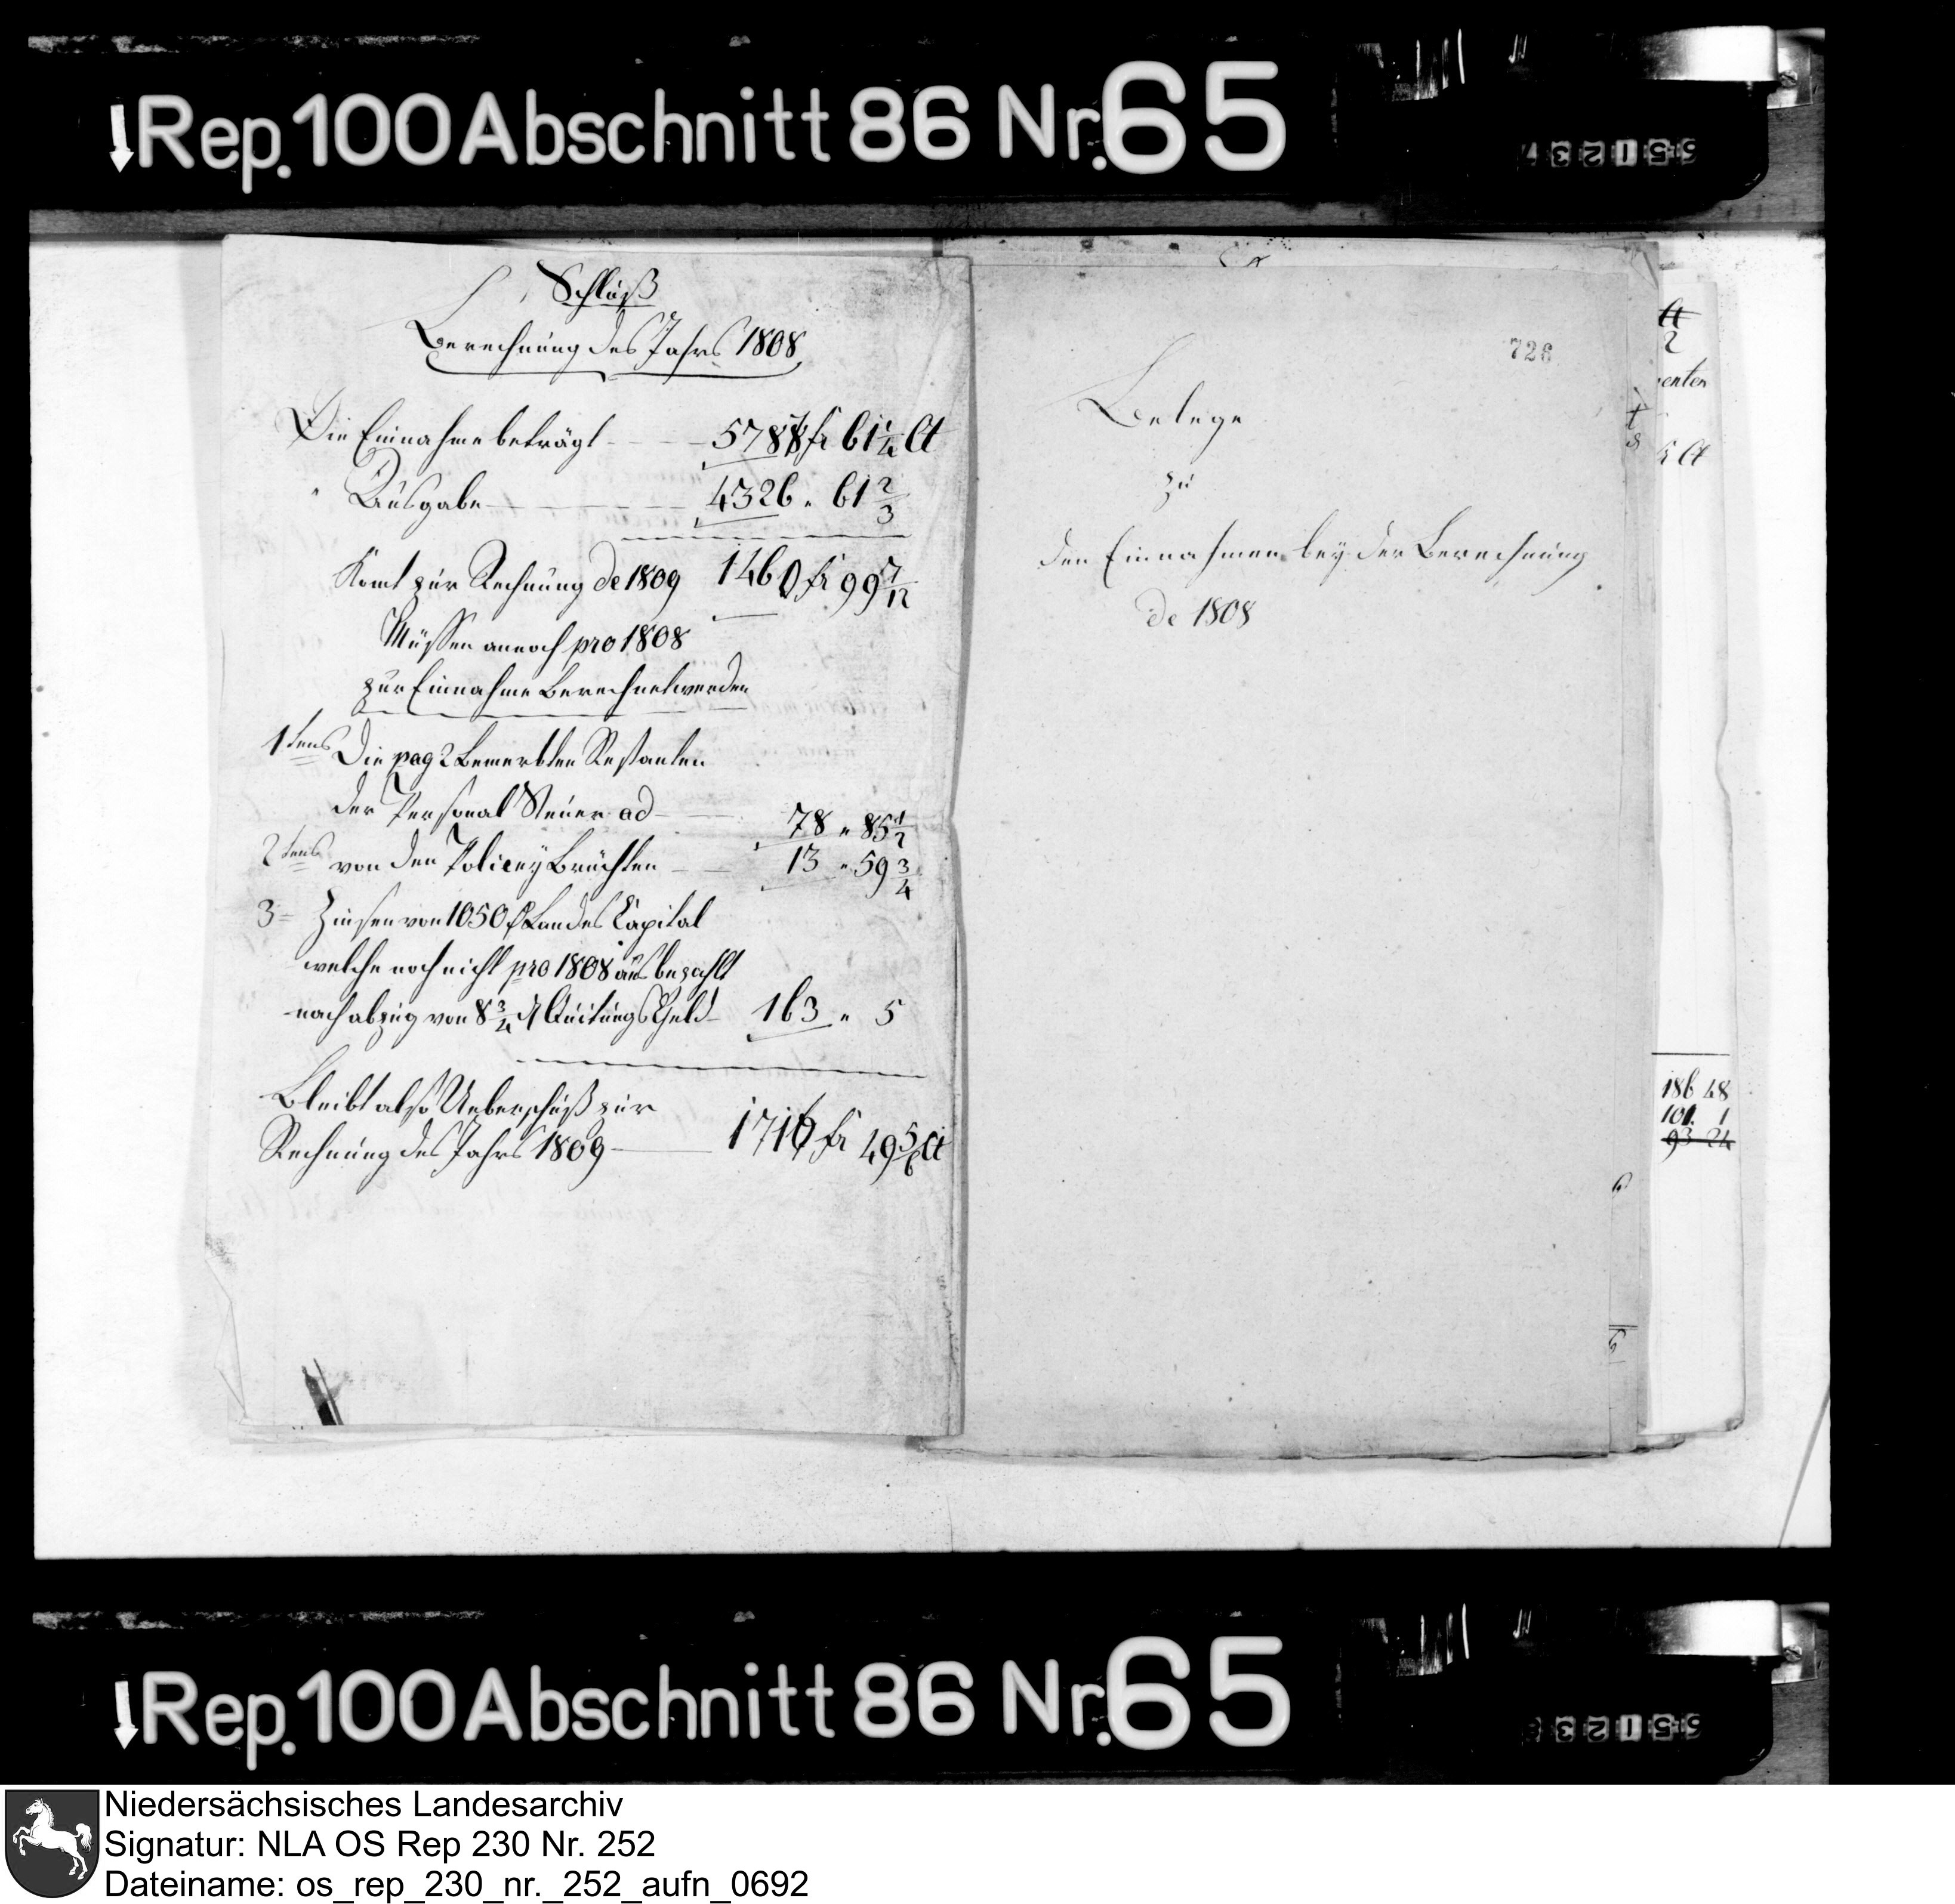 Rep. 100 Abschnitt 86 Nr. 65
Schluß
Berechnung des Jahrs 1808
Die Einnahme beträgt 578 fr 61 1/4 Ct
" Ausgabe 4326 " 61 2/3
Komt zur Rechnung de 1809 1460 fr 99 7/12
Müssen annoch pro 1808
zur Einnahme berechnet werden
1tens Die pag 2 bemerkten Restanten
der Personal Steuer ad 78 " 85 1/2
2tens von den Policey Brüchten 13 " 59 3/4
3 = Zinsen von 1050 Landes Capital
welche noch nicht pro 1808 ausbezahlt
nach abzug von 8 3/4 Quitungs Geld 163 " 5
Bleibt also Ueberschuß zur
Rechnung des Jahrs 1809 1716 fr 49 5/6 Ct
726
Belege
zu
den Einnahmen bey der Berechnung
de 1808
enten
Ct
186 48
101. 1
93 24
Rep. 100 Abschnitt 86 Nr. 65
Niedersächsisches Landesarchiv
Signatur: NLA OS Rep 230 Nr. 252
Dateiname: os_rep_230_nr._252_aufn_0692